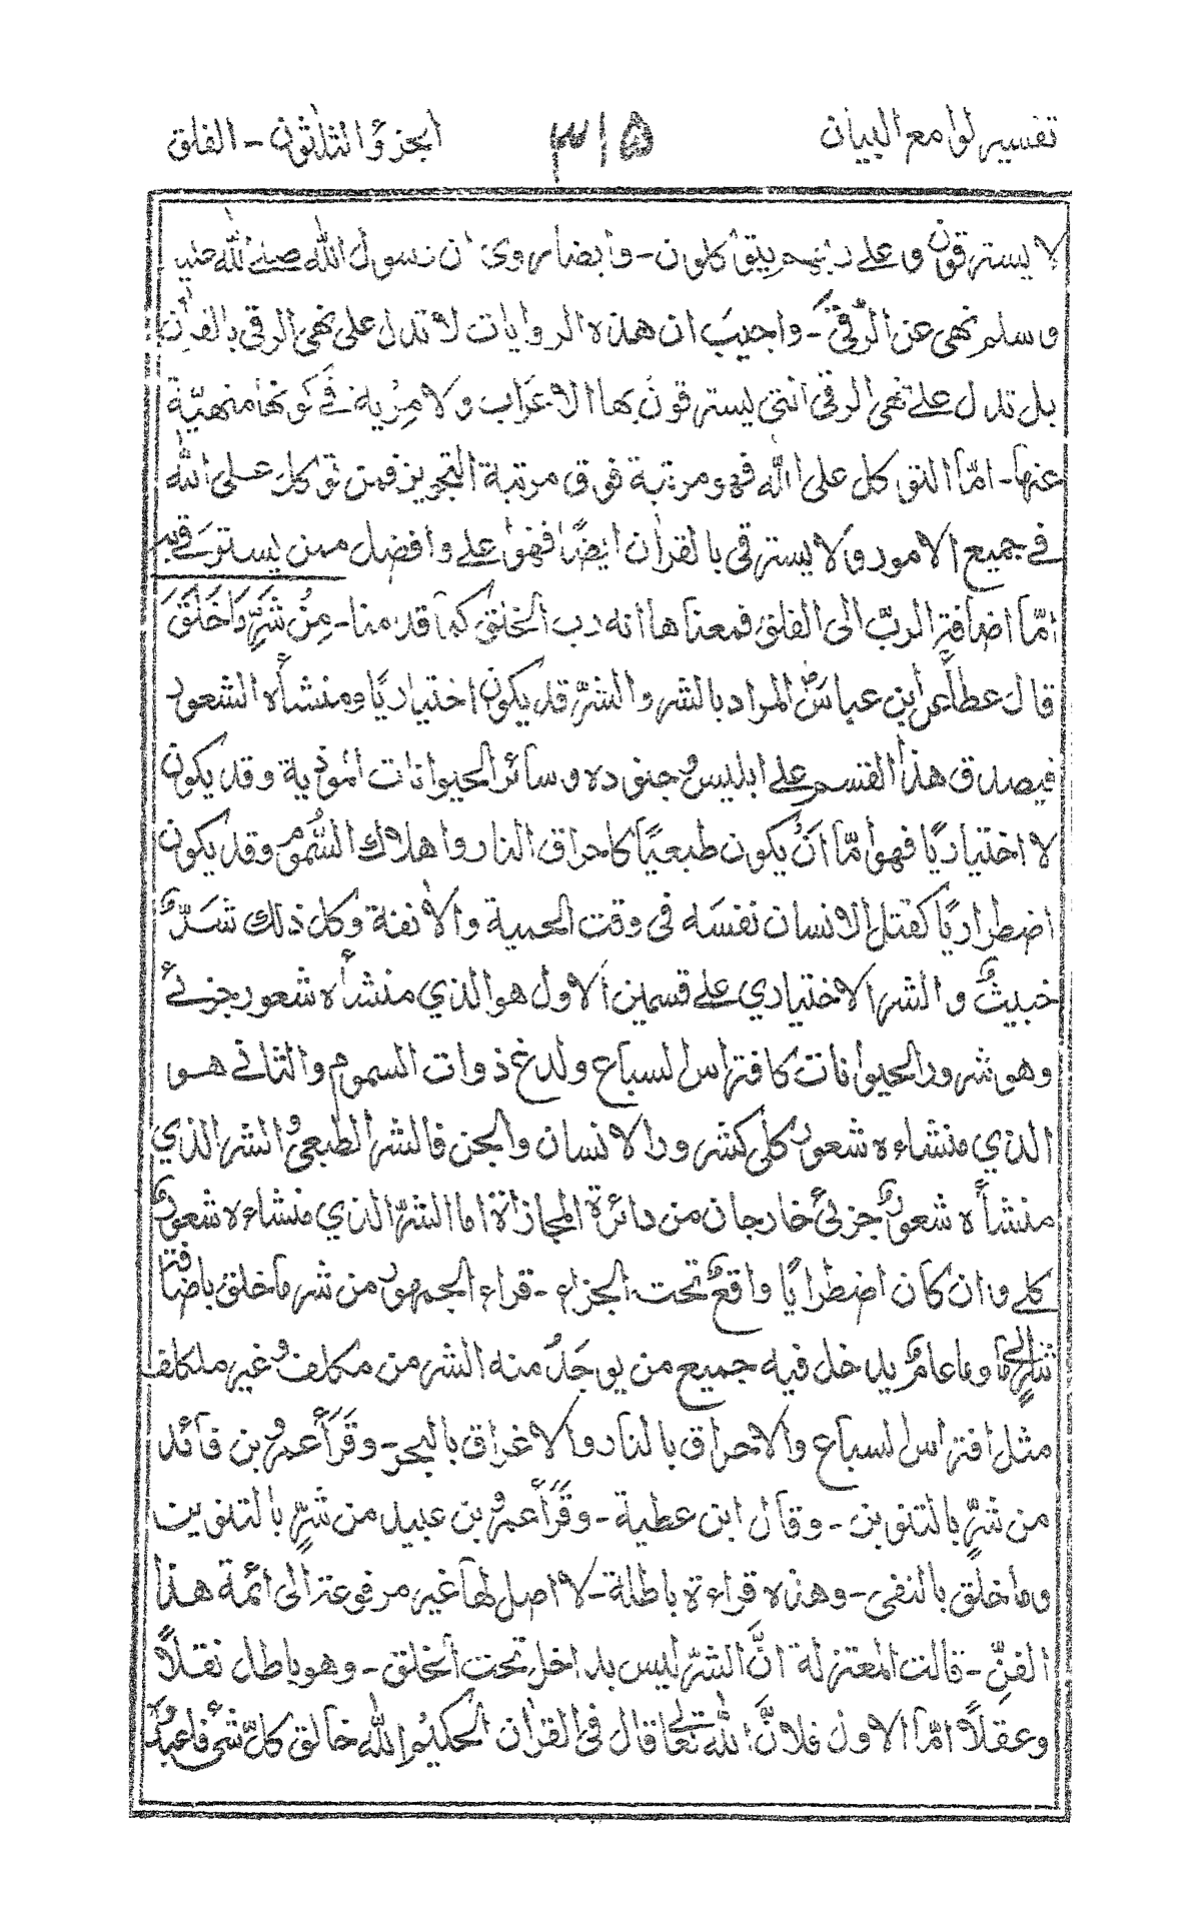 تفسير لوامع البيان ۳۱۵ الجزء الثلاثون - الفلق
لا يسترقون و على ربهم يتوكلون - وايضا روى ان رسول الله صلے الله عليه
وسلم نهى عن الرقى - واجيب ان هذه الروايات لا تدل على نهى الرقى بالقران
بل تدل علے نهى الرقى التى يسترقون بها الاعراب ولا مزية فى كونها منهية
عنها - امّا التوكل على الله فهو مرتبة فوق مرتبة التجويز فمن توكل على الله
فے جميع الامور ولا يسترقى بالقران ايضًا فهو اعلے وافضل ممن يسترقے به
امّا اضافة الربّ الى الفلق فمعناها انه رب الخلق كما قدمنا - مِنْ شَرِّ مَا خَلَقَ
قال عطاء عن ابن عباس المراد بالشر والشرّ قد يكون اختياريًا ومنشأه الشعور
فيصدق هذا القسم علے ابليس وجنوده وسائر الحيوانات الموذية وقد يكون
لا اختياريًا فهو امّا انْ يكون طبعيًا كاحراق النار واهلاك السُّموم وقد يكون
اضطراريًا كقتل الانسان نفسَه فى وقت الحمية والانفة وكل ذلك شَرٌّ
خبيثٌ والشر الاختياري علے قسمين الاول هو الذي منشأه شعور جزئے
وهو شرور الحيوانات كافتراس السباع ولدغ ذوات السموم والثانے هو
الذي منشاءه شعور كلى كشرور الانسان والجن فالشر الطبعى والشر الذي
منشأه شعورٌ جزئى خارجان من دائرة المجازاة اما الشرّ الذي منشاءه شعورٌ
كلے وان كان اضطرايًا واقعٌ تحت الجزاء - قراء الجمهور من شر ما خلق باضافة
شر الى ما وما عام يدخل فيه جميع من يوجَدُ منه الشر من مكلف وغير مكلف
مثل افتراس السباع والاحراق بالنار والاغراق بالبحر - وقَرَأَ عمرو بن قائد
من شرٍّ بالتنوين - وقال ابن عطية - وقَرَأَ عمرو بن عبيد من شرٍّ بالتنوين
وما خلق بالنفى - وهذه قراءة باطلة - لا اصل لها غير مرفوعة الى ائمة هذا
الفنِّ - قالت المعتزلة انَّ الشرّ ليس بداخل تحت الخلق - وهو باطل نقلًا
وعقلًا امّا الاول فلانَّ الله تعالى قال فى القران الحكيم الله خالق كلّ شئ فاعبدوه